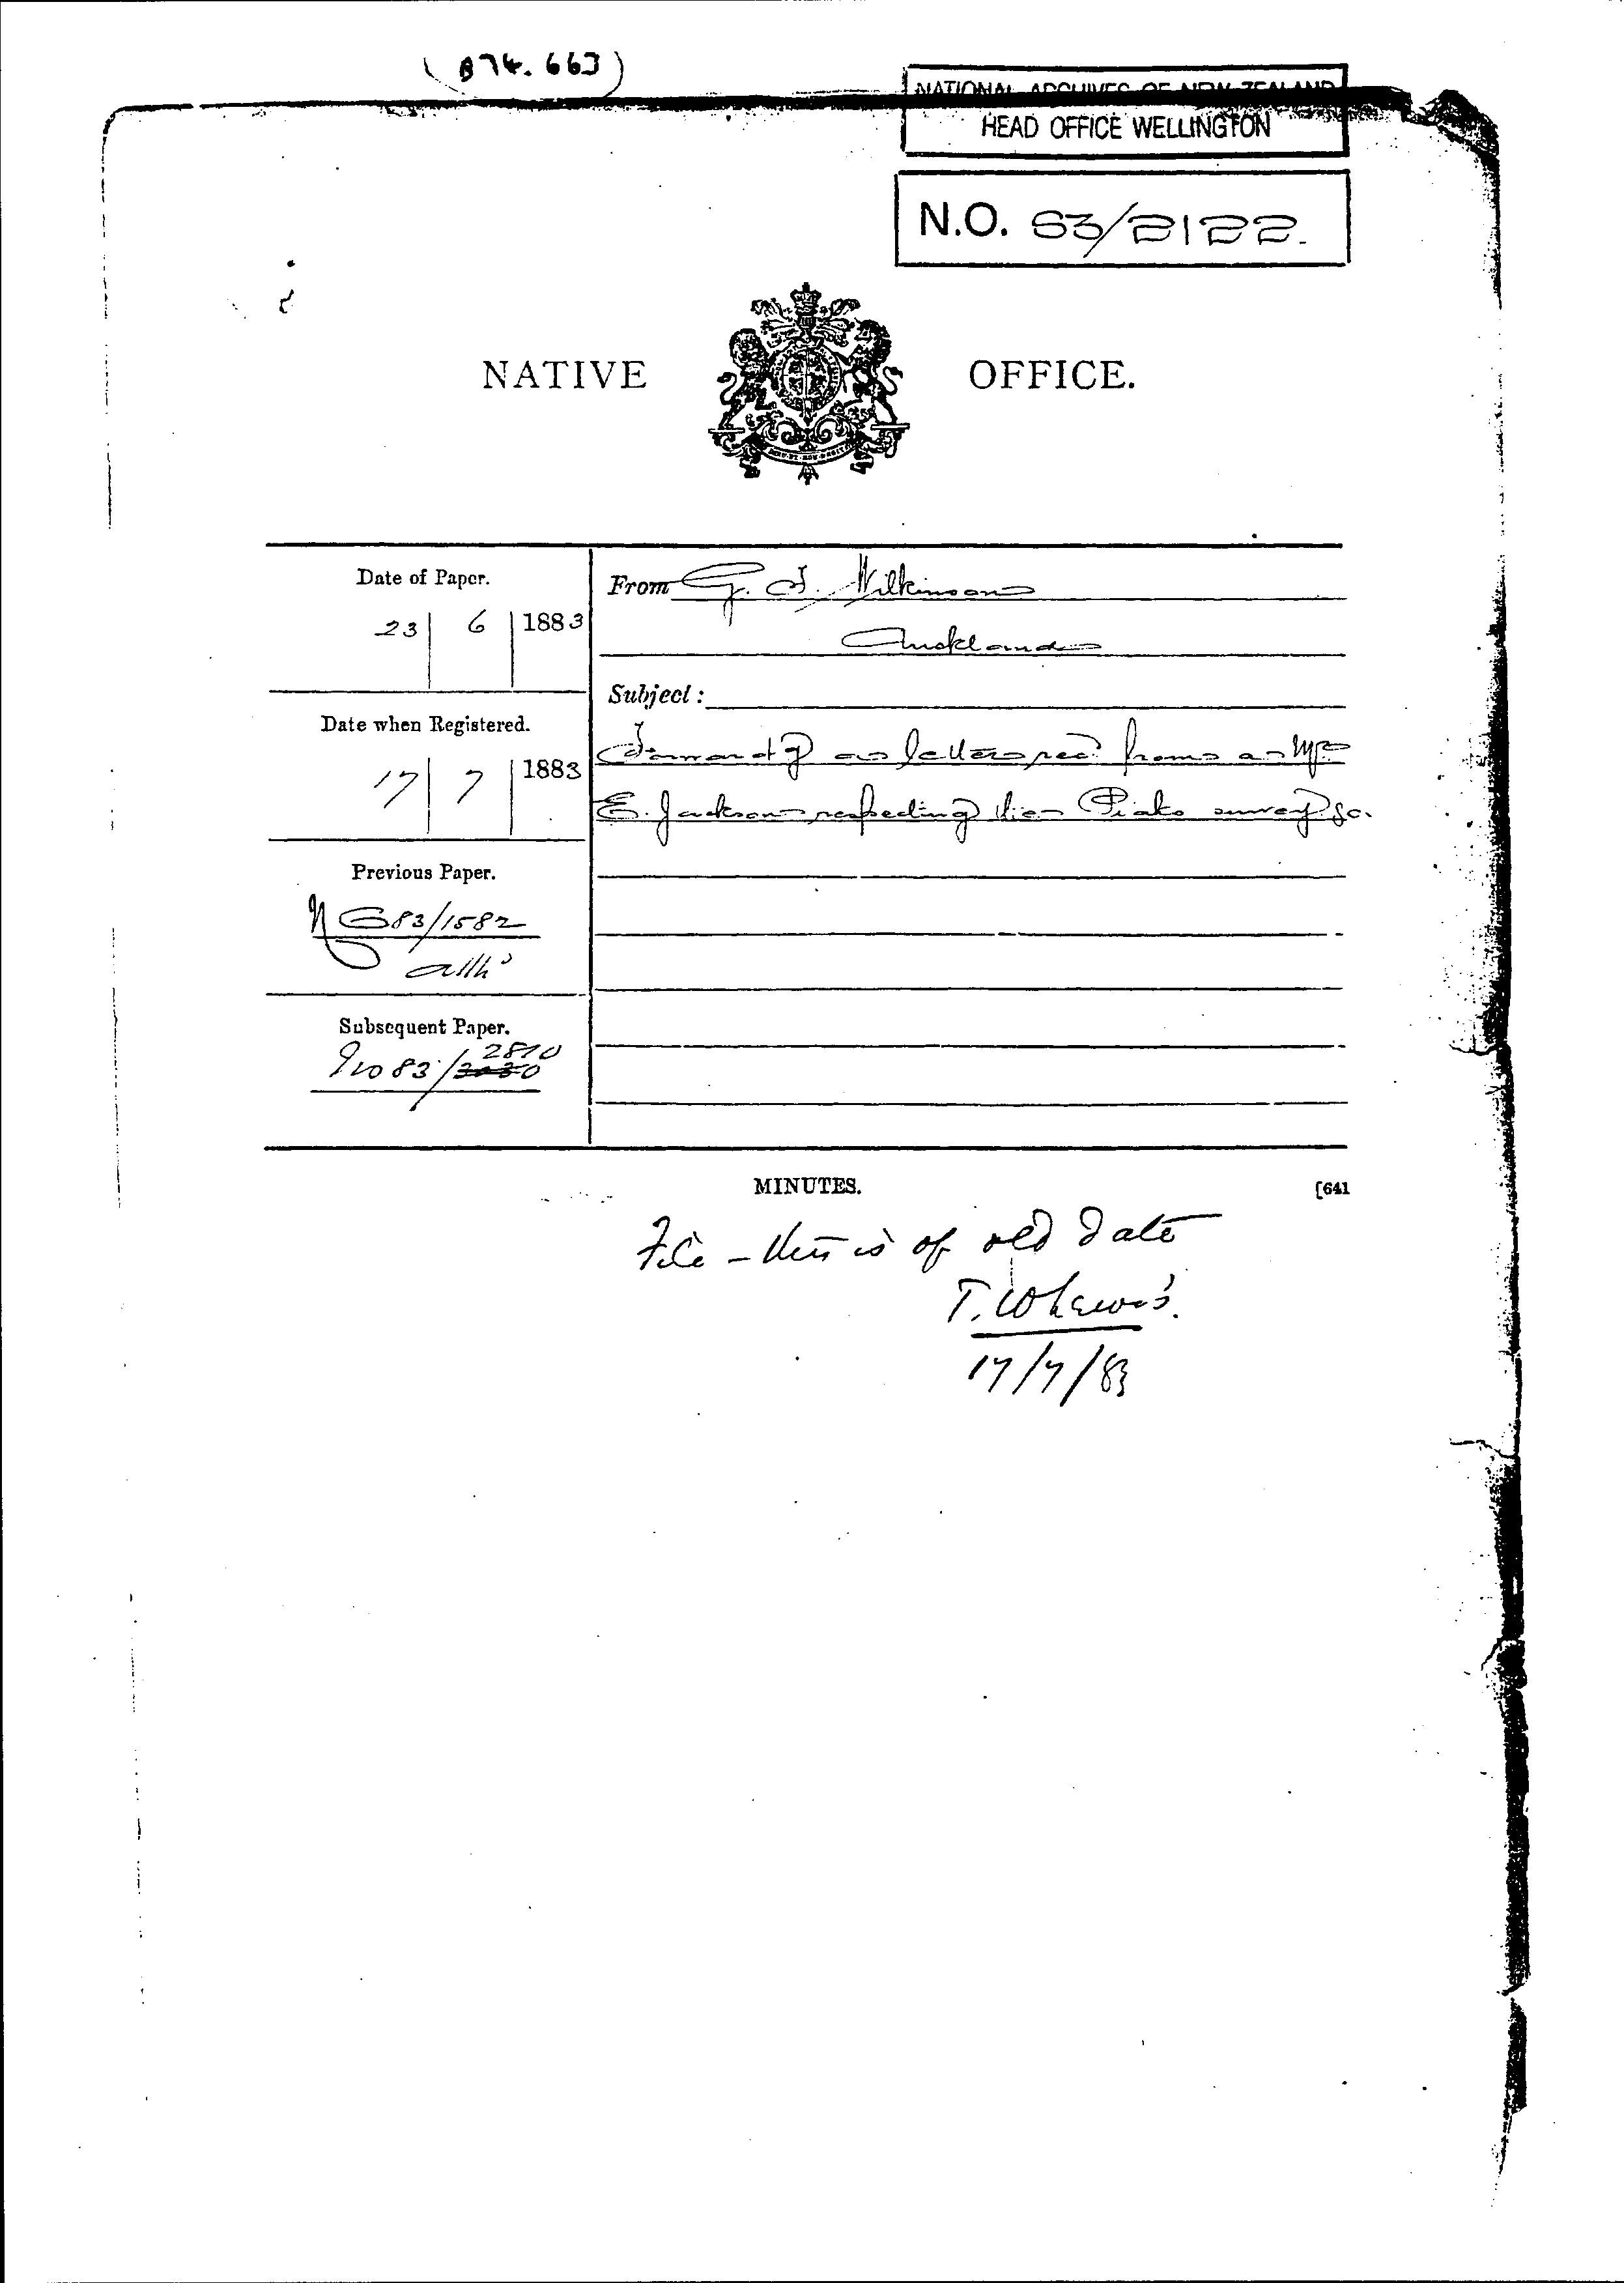 (B74.663)
NATIONAL ARCHIVES OF NEW ZEALAND
HEAD OFFICE WELLINGTON
N.O. 83/2122.
NATIVE OFFICE.
Date of Paper.
23 | 6 | 1883
From G. T. Wilkinson
Auckland
Subject:
Date when Registered.
17 | 7 | 1883
Forwardg a letter recd from a Mr
E. Jackson respecting the Piako survey &c.
Previous Paper.
83/1582
Subsequent Paper.
NO 83/2810
MINUTES.
[641
File – this is of old date
T. W Lewis.
17/7/83